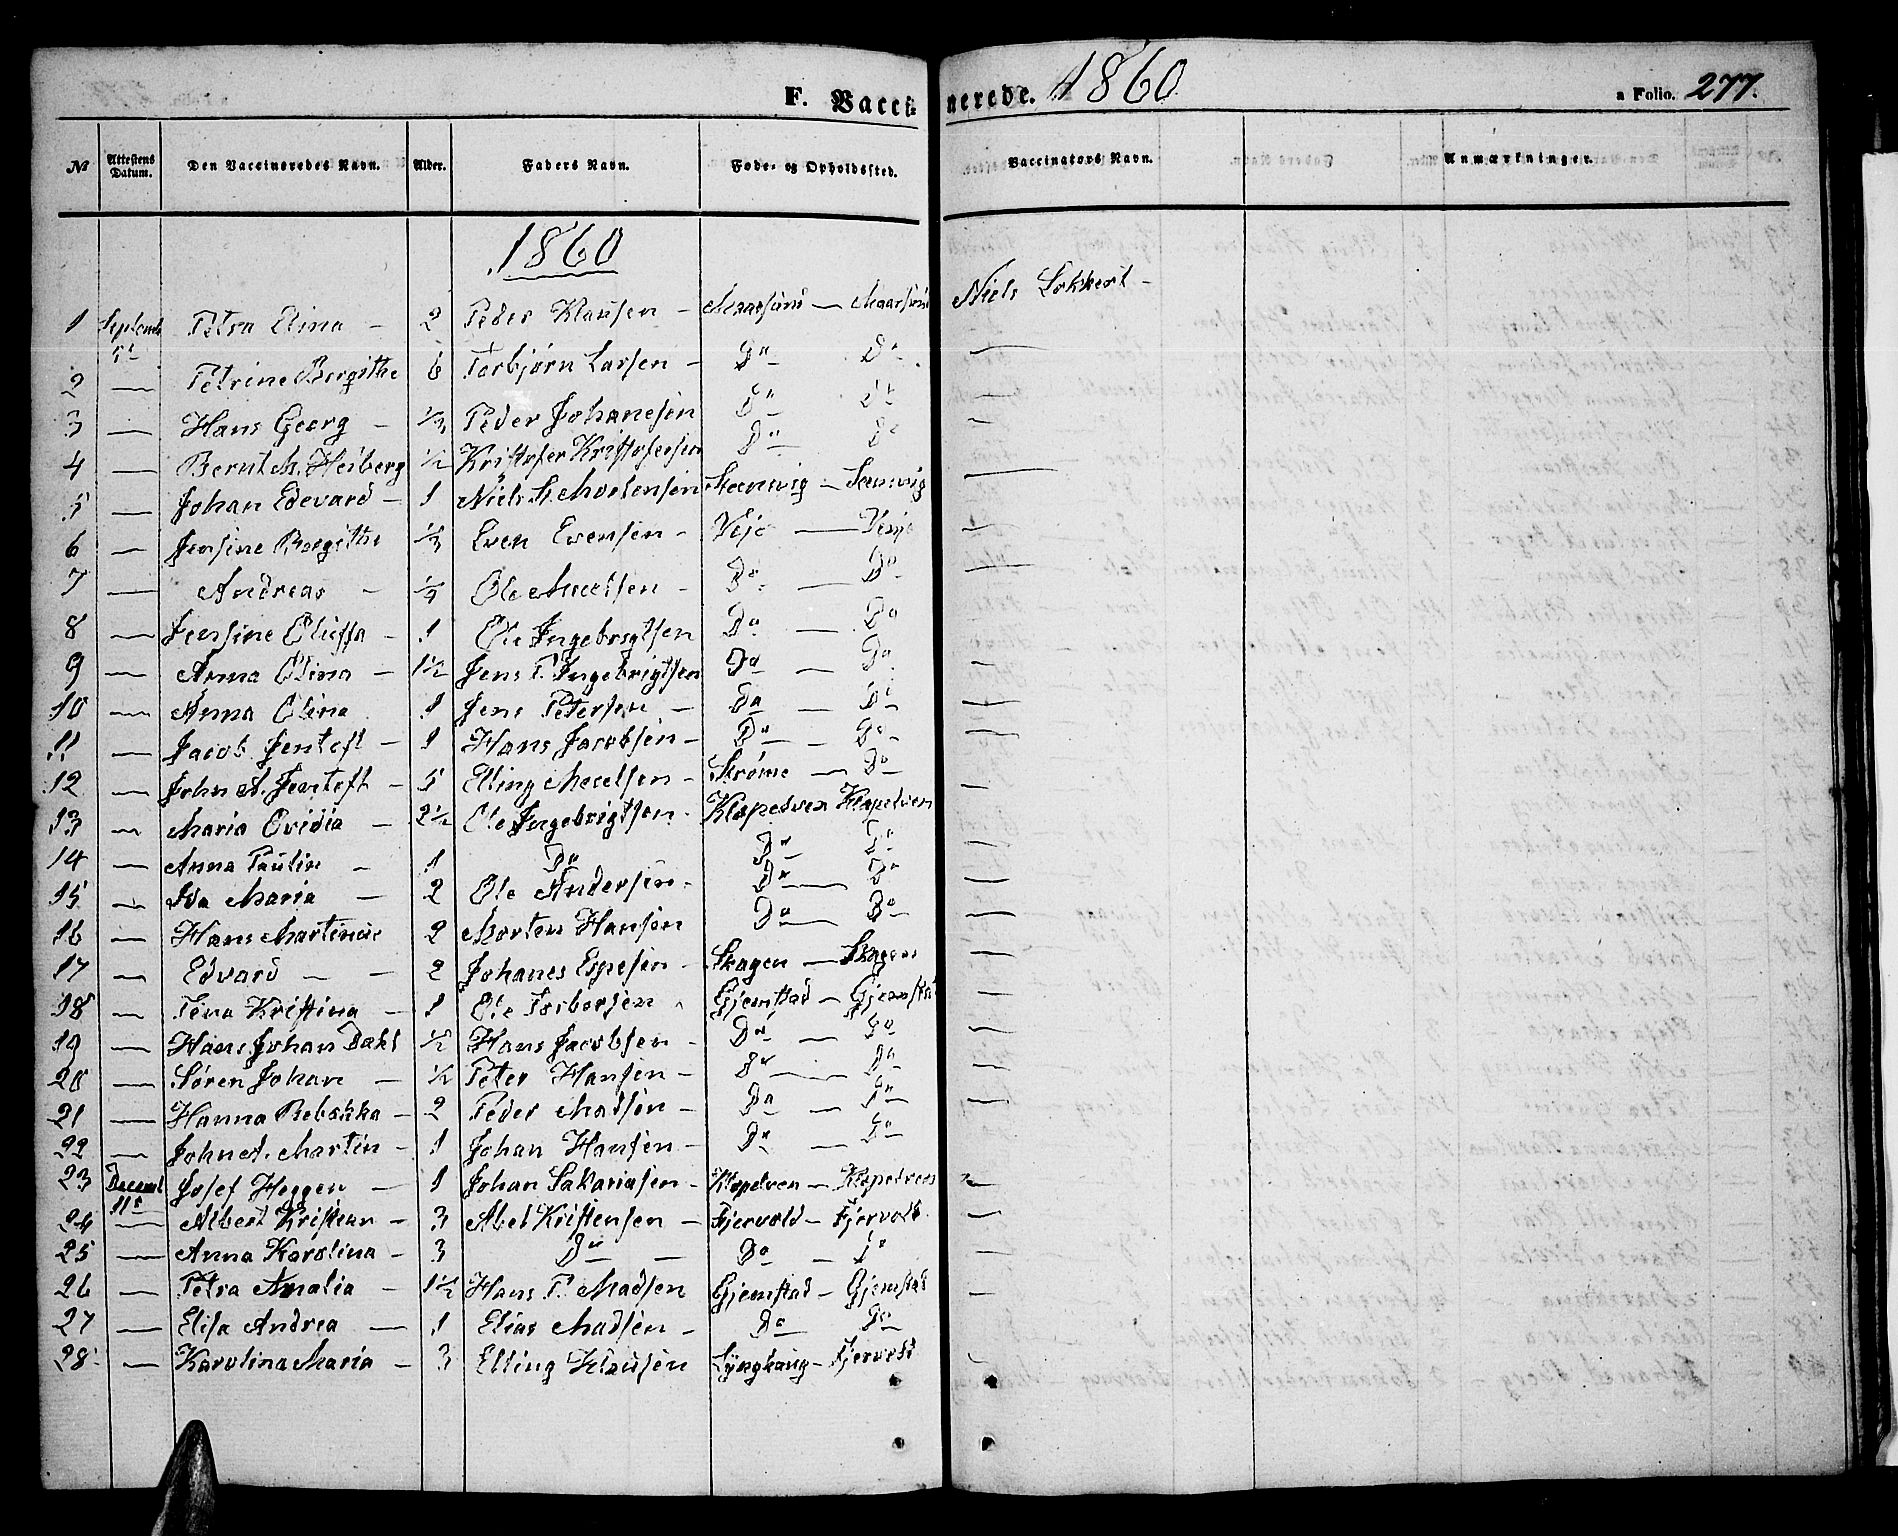 F. Vaccinerede. 1860
a Folio. 277.
No Attestens Datum. Den Vaccineredes Navn. Alder. Faders Navn. Føde- og Opholdssted. Vaccinators Navn. Anmærkninger.
1860
1 Septemb 5t Petra Elina – 2 Peder Klausen – Maarsund — Maarsund Niels Lokkert –
2 — Petrine Bergithe 6 Torbjørn Larsen – Do Do —
3 — Hans Georg – 1/3 Peder Johanesen Do Do —
4 — Bernt M. Heiberg 1/2 Kristofer Kristofersen Do Do —
5 — Johan Edevard – 1 Niels S. Mortensen —
6 — Jensine Bergithe 1/3 Even Evensen – —
7 — Andreas – Ole – Do — Do —
8 — Jensine 1 Ole Ingebrigtsen Do — Do
9 — Anna Olina – 1 1/2 Jens P. Ingebrigtsen Do — Do —
10 — Anna Olina 1 Jens Petersen – Do — Do —
11 — Jacob Jentoft – 1 Hans Jacobsen – Do — Do —
12 — John A. Jentoft – 5 Elling – Strøme — Do —
13 — Maria Ovidia – 2 1/2 Ole Ingebrigtsen – Klopetven Klopetven
14 — Anna Paulin – 1 Do Do Do —
15 — Ida Maria – 2 Ole Andersen – Do — Do —
16 — Hans Martinus 2 Morten Hansen Do — Do —
17 — Edvard – – 2 Johanes Espesen – Skagen — Skagen —
18 — Tena Kristina – 1 Ole Torbersen Gjemstad – Gjemstad —
19 — Hans Johan Dahl 1/2 Hans Jacobsen – Do — Do —
20 — Søren Johan – 1/2 Peter Hansen – Do — Do —
21 — Hanna Rebekka – 2 Peder Madsen – Do — Do —
22 — John A. Martin – 1 Johan Hansen – Do — Do
23 Decemb 11t Josef Heggen – 1 Johan Sakariasen – Klopetven – Klopetven
24 — Albert Kristian – 3 Abel Kristensen – Fjervold – Fjervold. —
25 — Anna Karolina – 3 Do — Do – Do —
26 — Petra Amalia – 1 1/2 Hans P. Madsen Gjemstad – Gjemstad —
27 — Elisa Andrea — 1 Elias Madsen – Do Do
28 — Karolina Maria – 3 Elling Klausen – Fjervold